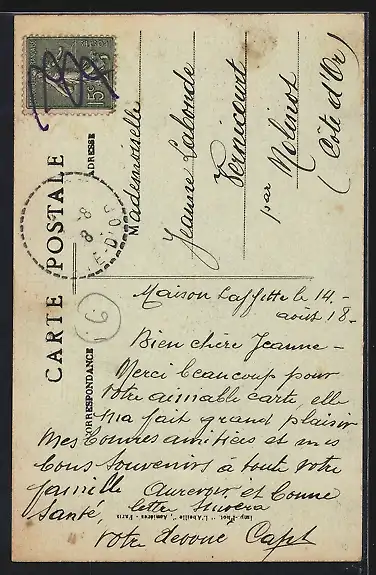 CARTE POSTALE
CORRESPONDANCE
ADRESSE
Mademoiselle
Jeanne Labonde
Vernicourt
par Molinot
(Côte d'Or)
15c
8-8
E-D'OR
6
Maison Laffitte le 14-
août 18-
Bien chère Jeanne-
Merci beaucoup pour
votre aimable carte, elle
m'a fait grand plaisir
Mes bonnes amitiées et mes
bons souvenirs à toute votre
famille Aurevoir et bonne
santé, letter suivera
votre devoué Capt
Imp. Phot. "L'Abeille", Asnières-Paris